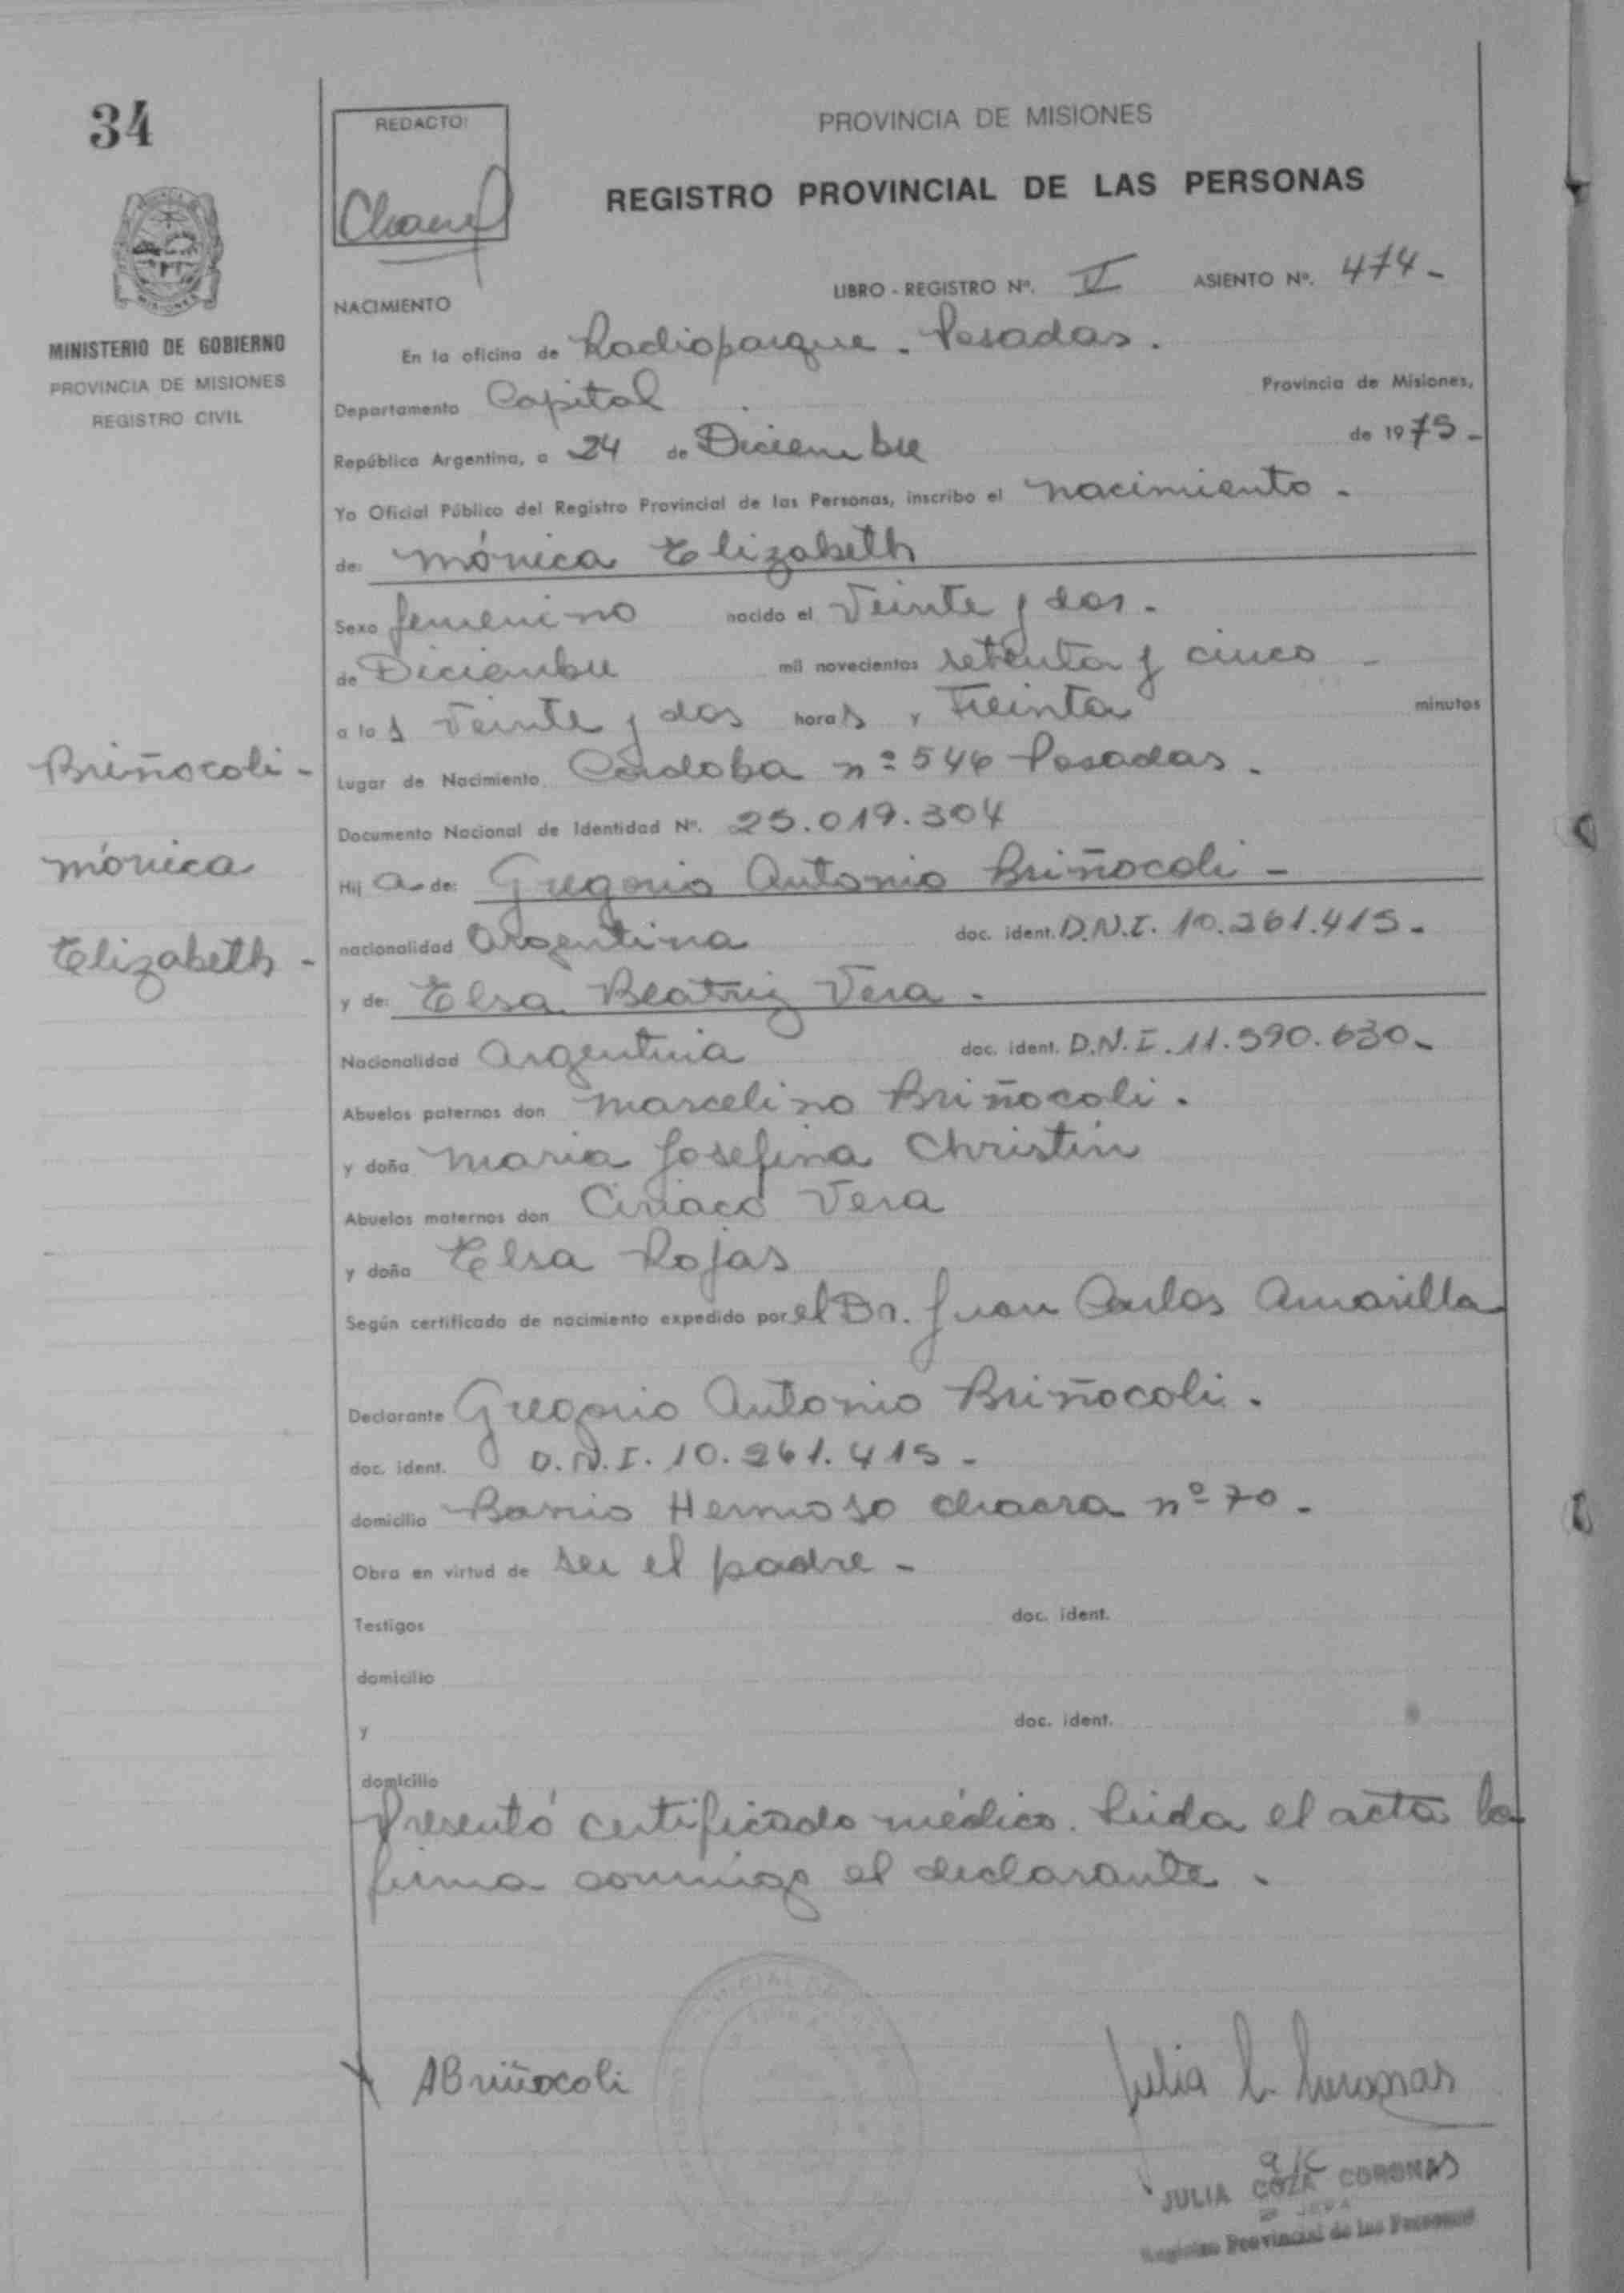 34
REDACTO:
PROVINCIA DE MISIONES
REGISTRO PROVINCIAL DE LAS PERSONAS
LIBRO - REGISTRO Nº. II ASIENTO Nº. 474 -
NACIMIENTO
MINISTERIO DE GOBIERNO
PROVINCIA DE MISIONES
REGISTRO CIVIL
En la oficina de Radioparque - Posadas.
Departamento Capital Provincia de Misiones,
República Argentina, a 24 de Diciembre de 1975 -
Yo Oficial Público del Registro Provincial de las Personas, inscribo el nacimiento -
de: Mónica Elizabeth
Sexo femenino nacido el Veinte y dos -
de Diciembre mil novecientos setenta y cinco -
a las Veinte y dos horas y Treinta minutos
Lugar de Nacimiento Córdoba nº 546 Posadas -
Documento Nacional de Identidad Nº. 25.019.304
Hija de: Gregorio Antonio Briñocoli -
nacionalidad Argentina doc. ident. D.N.I. 10.261.415 -
y de: Elsa Beatriz Vera -
Nacionalidad Argentina doc. ident. D.N.I. 11.590.630 -
Abuelos paternos don Marcelino Briñocoli.
y doña Maria Josefina Christin
Abuelos maternos don Ciriaco Vera
y doña Elsa Rojas
Según certificado de nacimiento expedido por el Dr. Juan Carlos Amarilla
Declarante Gregorio Antonio Briñocoli.
doc. ident. D.N.I. 10.261.415 -
domicilio Barrio Hermoso chacra nº 70 -
Obra en virtud de ser el padre -
Testigos doc. ident.
domicilio
y doc. ident.
domicilio
Presentó certificado médico. Leida el acta la
firma conmigo el declarante -
Briñocoli -
Mónica
Elizabeth -
ABriñocoli
Julia C. Coronas
a/c
JULIA COZA CORONAS
Registro Provincial de las Personas